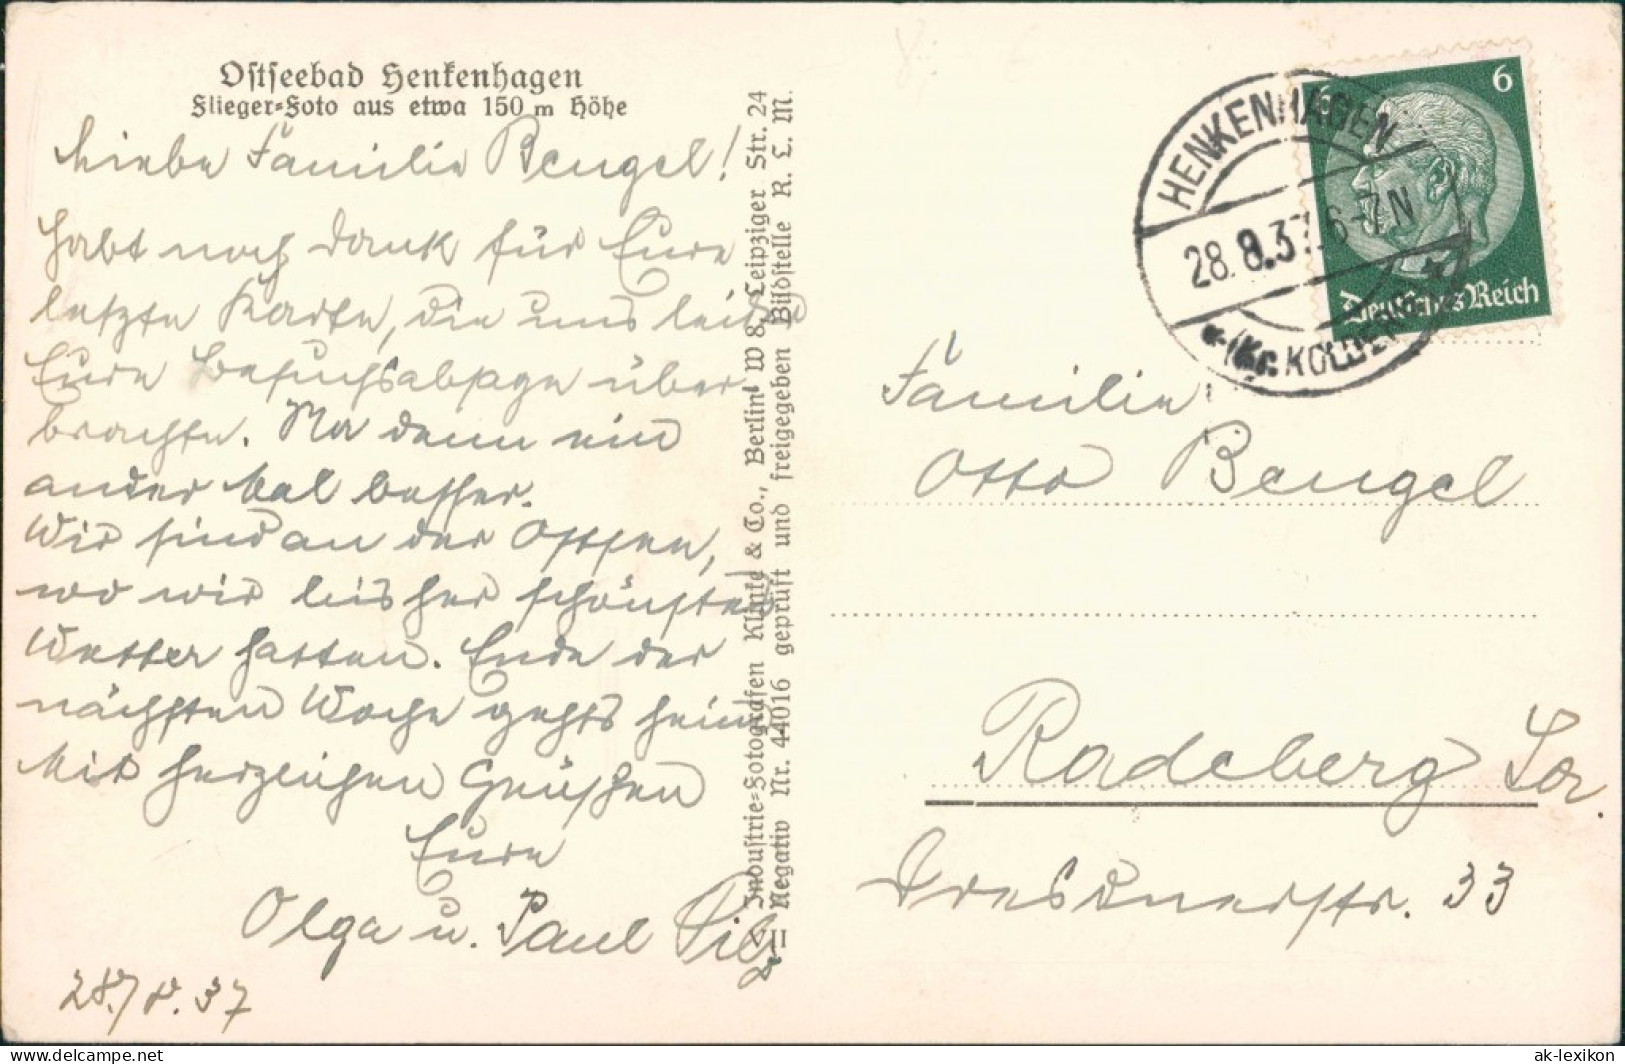 Ostseebad Henkenhagen
Flieger-Foto aus etwa 150 m Höhe
Liebe Familie Bengel!
Habt noch Dank für Eure
letzte Karte, die uns leider
Eure Besuchsabsage über
brachte. Na denn ein
ander Mal besser.
Wir sind an der Ostsee,
wo wir bisher schönstes
Wetter hatten. Ende der
nächsten Woche gehts heim
Mit herzlichen Grüßen
Eure
Olga u. Paul Pilz
28./8.37
Industrie-Fotografen Klinke & Co., Berlin W 8, Leipziger Str. 24
Negativ Nr. 44016 geprüft und freigegeben Bildstelle R. L. M.
VII
HENKENHAGEN
28.8.37.6-7N
(Kr. KOLBERG
6
6
Deutsches Reich
Familie
Otto Bengel
Radeberg Sa.
Dresdnerstr. 33
ak-lexikon
delcampe.net